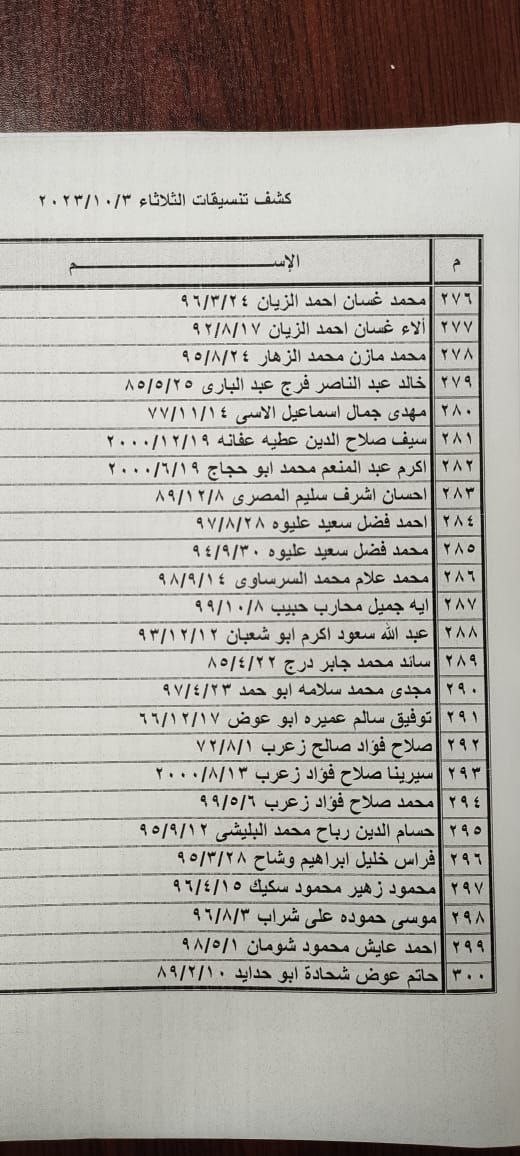 كشف تنسيقات الثلاثاء ٢٠٢٣/١٠/٣
م الإســـــــــم
٢٧٦ محمد غسان احمد الزيان ٩٦/٣/٢٤
٢٧٧ ألاء غسان احمد الزيان ٩٢/٨/١٧
٢٧٨ محمد مازن محمد الزهار ٩٥/٨/٢٤
٢٧٩ خالد عبد الناصر فرج عبد البارى ٨٥/٥/٢٥
٢٨٠ مهدى جمال اسماعيل الاسى ٧٧/١١/١٤
٢٨١ سيف صلاح الدين عطيه عفانه ٢٠٠٠/١٢/١٩
٢٨٢ اكرم عبد المنعم محمد ابو حجاج ٢٠٠٠/٦/١٩
٢٨٣ احسان اشرف سليم المصرى ٨٩/١٢/٨
٢٨٤ احمد فضل سعيد عليوه ٩٧/٨/٢٨
٢٨٥ محمد فضل سعيد عليوه ٩٤/٩/٣٠
٢٨٦ محمد علام محمد السرساوى ٩٨/٩/١٤
٢٨٧ ايه جميل محارب حبيب ٩٩/١٠/٨
٢٨٨ عبد الله سعود اكرم ابو شعبان ٩٣/١٢/١٢
٢٨٩ سائد محمد جابر درج ٨٥/٤/٢٢
٢٩٠ مجدى محمد سلامه ابو حمد ٩٧/٤/٢٣
٢٩١ توفيق سالم عميره ابو عوض ٦٦/١٢/١٧
٢٩٢ صلاح فؤاد صالح زعرب ٧٢/٨/١
٢٩٣ سيرينا صلاح فؤاد زعرب ٢٠٠٠/٨/١٣
٢٩٤ محمد صلاح فؤاد زعرب ٩٩/٥/٦
٢٩٥ حسام الدين رباح محمد البليشى ٩٥/٩/١٢
٢٩٦ فراس خليل ابراهيم وشاح ٩٥/٣/٢٨
٢٩٧ محمود زهير محمود سكيك ٩٦/٤/١٥
٢٩٨ موسى حموده على شراب ٩٦/٨/٣
٢٩٩ احمد عايش محمود شومان ٩٨/٥/١
٣٠٠ حاتم عوض شحادة ابو حدايد ٨٩/٢/١٠